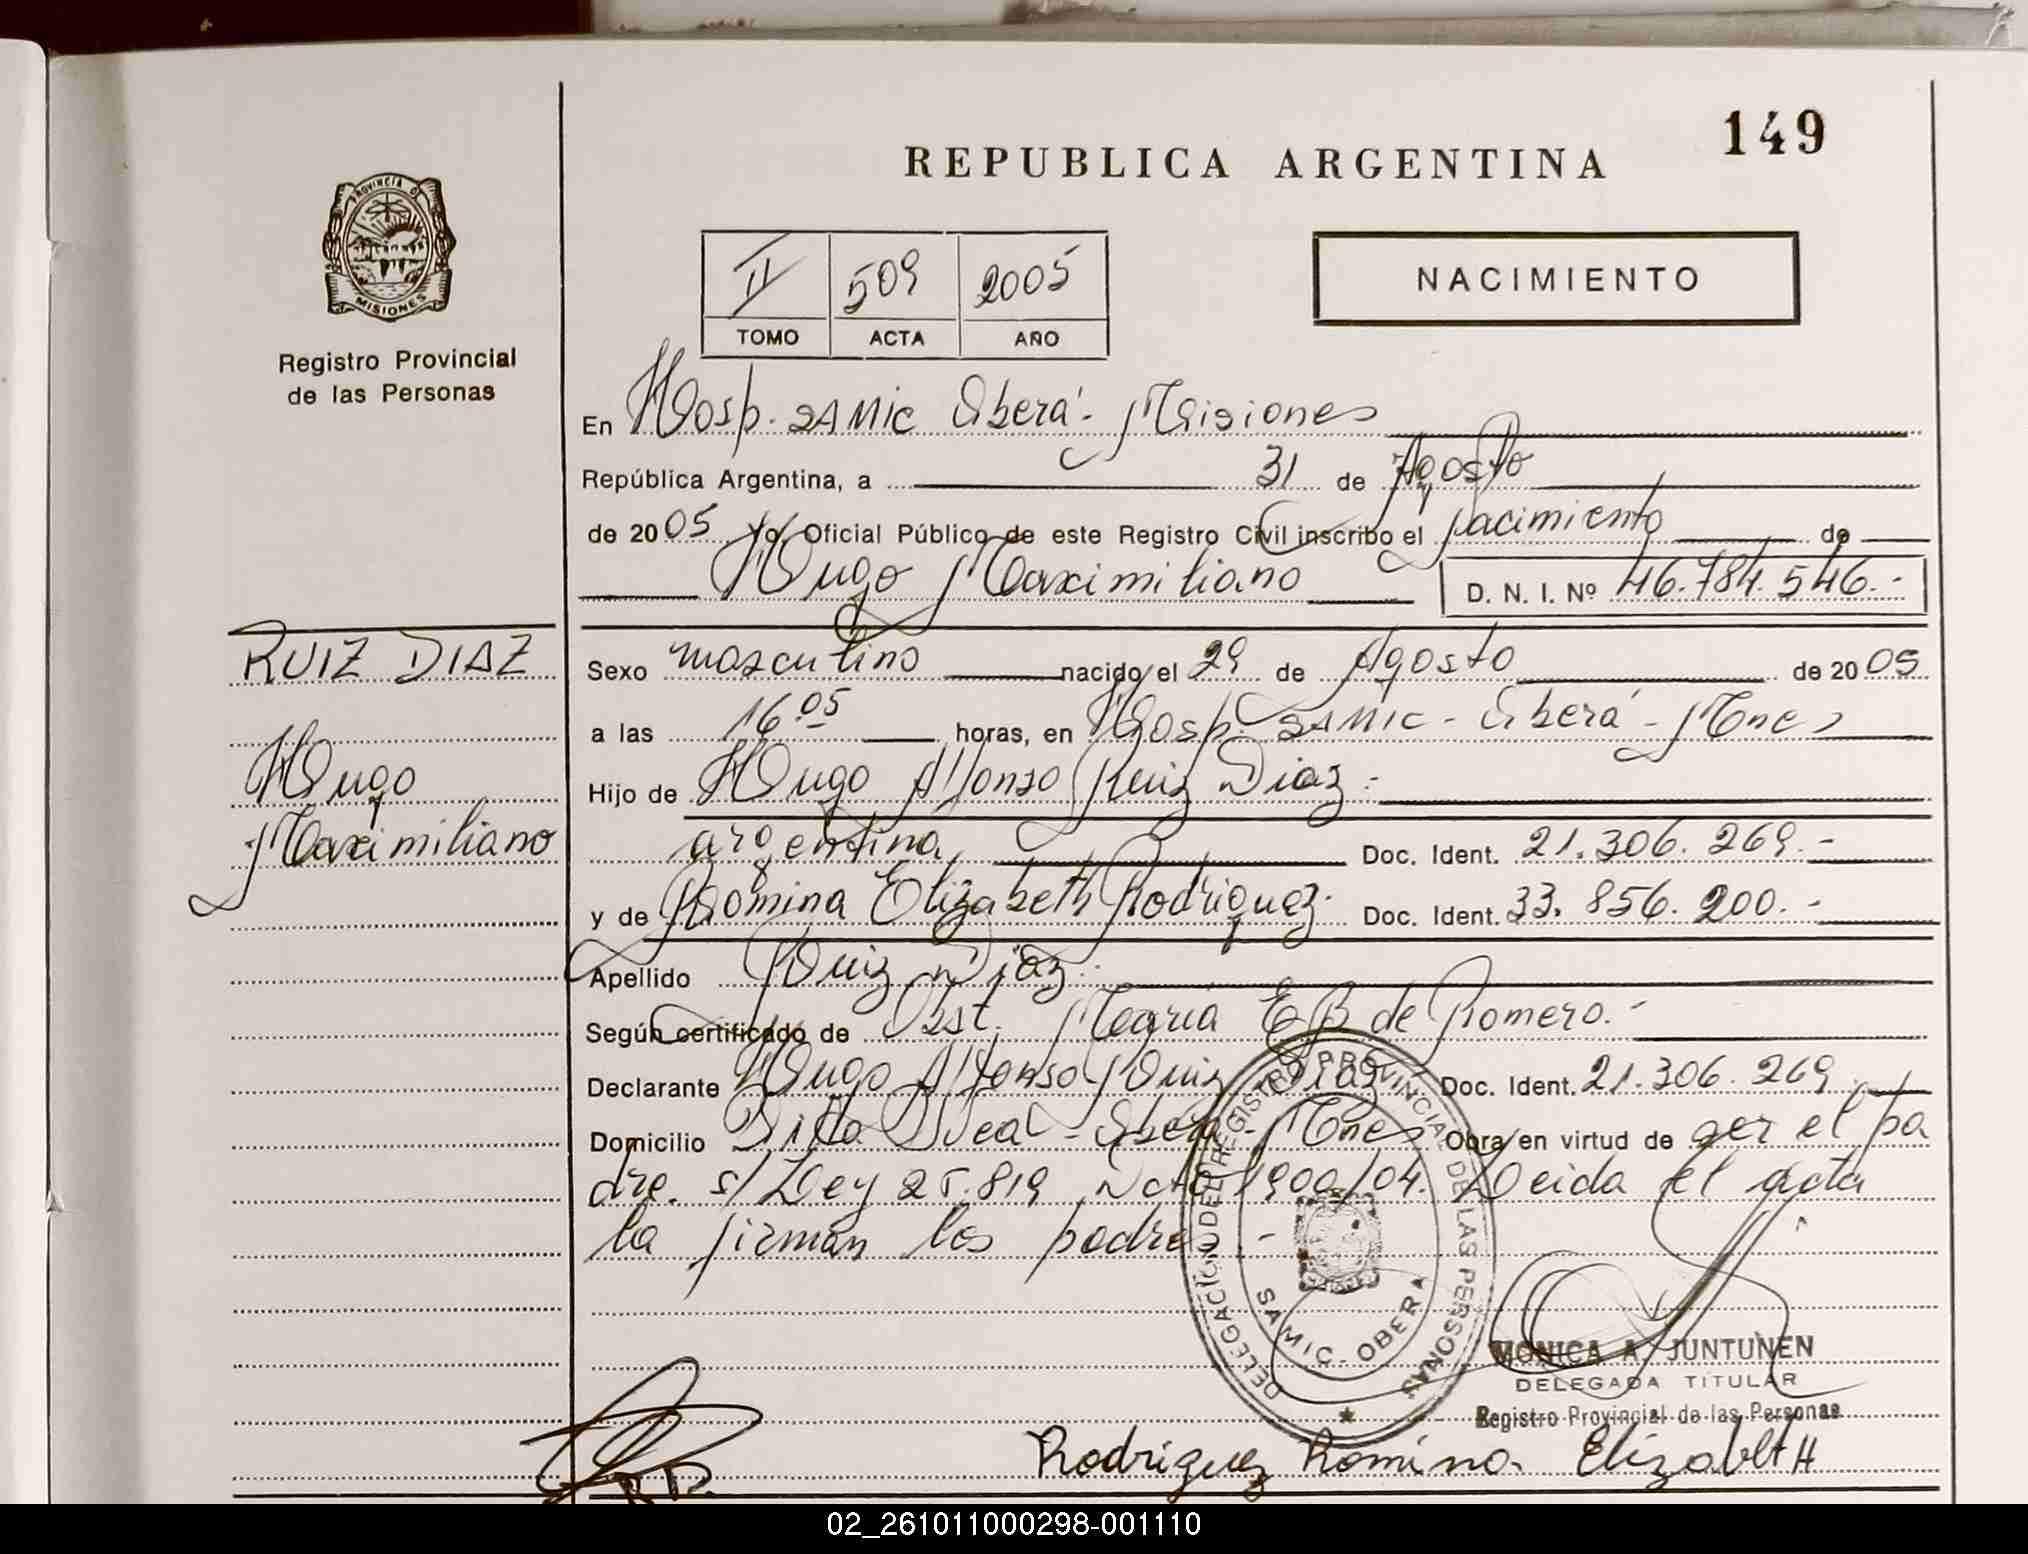 149
REPUBLICA ARGENTINA
PROVINCIA D
MISIONES
Registro Provincial
de las Personas
II 509 2005
TOMO ACTA AÑO
NACIMIENTO
En Hosp. SAMIC Oberá - Misiones
República Argentina, a 31 de Agosto
de 2005 Yo, Oficial Público de este Registro Civil inscribo el Nacimiento de
Hugo Maximiliano D. N. I. Nº 46.784.546.-
RUIZ DIAZ
Hugo
Maximiliano
Sexo masculino nacido el 29 de Agosto de 2005
a las 16.05 horas, en Hosp. SAMIC - Oberá - Mnes
Hijo de Hugo Alfonso Ruiz Diaz.-
argentina Doc. Ident. 21.306.269.-
y de Romina Elizabeth Rodriguez. Doc. Ident. 33.856.200.-
Apellido Ruiz Diaz.-
Según certificado de Obst. María E B de Romero.-
Declarante Hugo Alfonso Ruiz Diaz Doc. Ident. 21.306.269
Domicilio Oberá - Mnes Obra en virtud de ser el pa
dre. s/ Ley 25.819 Dcto 1900/04. Leida el acta
la firman los padres.-
DELEGACION DEL REGISTRO PROVINCIAL DE LAS PERSONAS
SAMIC - OBERA
MONICA A. JUNTUNEN
DELEGADA TITULAR
Registro Provincial de las Personas
Rodriguez Romina Elizabeth
02_261011000298-001110